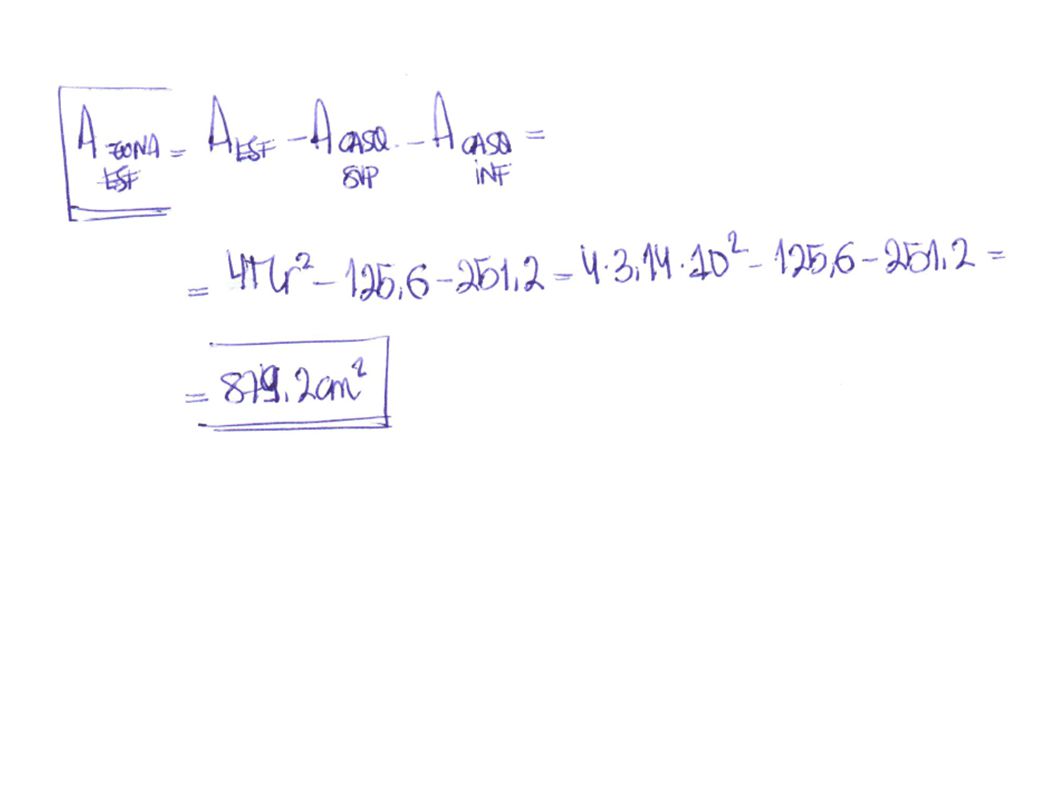 A ZONA ESF = A ESF - A CASQ. SUP - A CASQ INF =
= 4πr² - 125,6 - 251,2 = 4·3,14·10² - 125,6 - 251,2 =
= 879,2 cm²